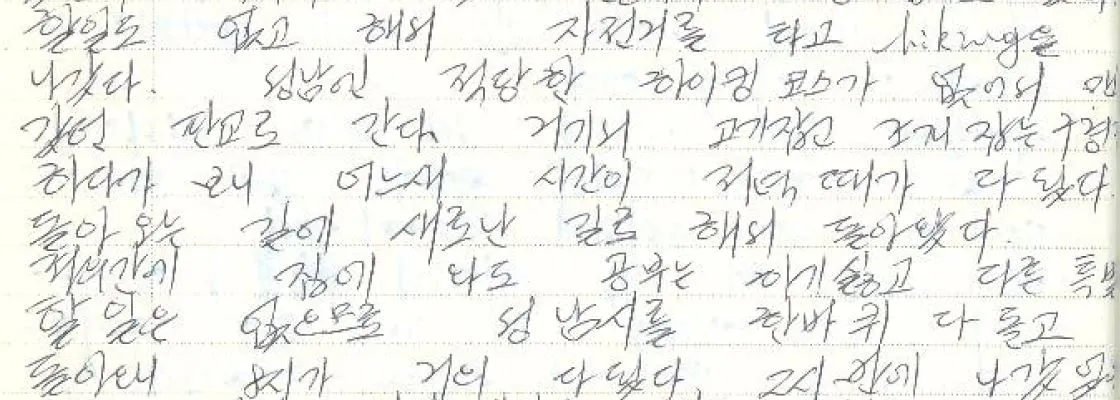 할일도 없고 해서 자전거를 타고 hiking을
나갔다. 성남엔 적당한 하이킹 코스가 없어서
갔던 판교로 간다. 거기서 고기잡고 하는 구경
하다가 보니 어느새 시간이 저녁 때가 다 됐다
돌아 오는 길에 새로난 길로 해서 돌아왔다.
저녁간에 집에 와도 공부는 하기 싫고 다른
할 일은 없으므로 성남시를 한바퀴 다 돌고
돌아오니 8시가 거의 다 됐다. 2시 안에 나갔